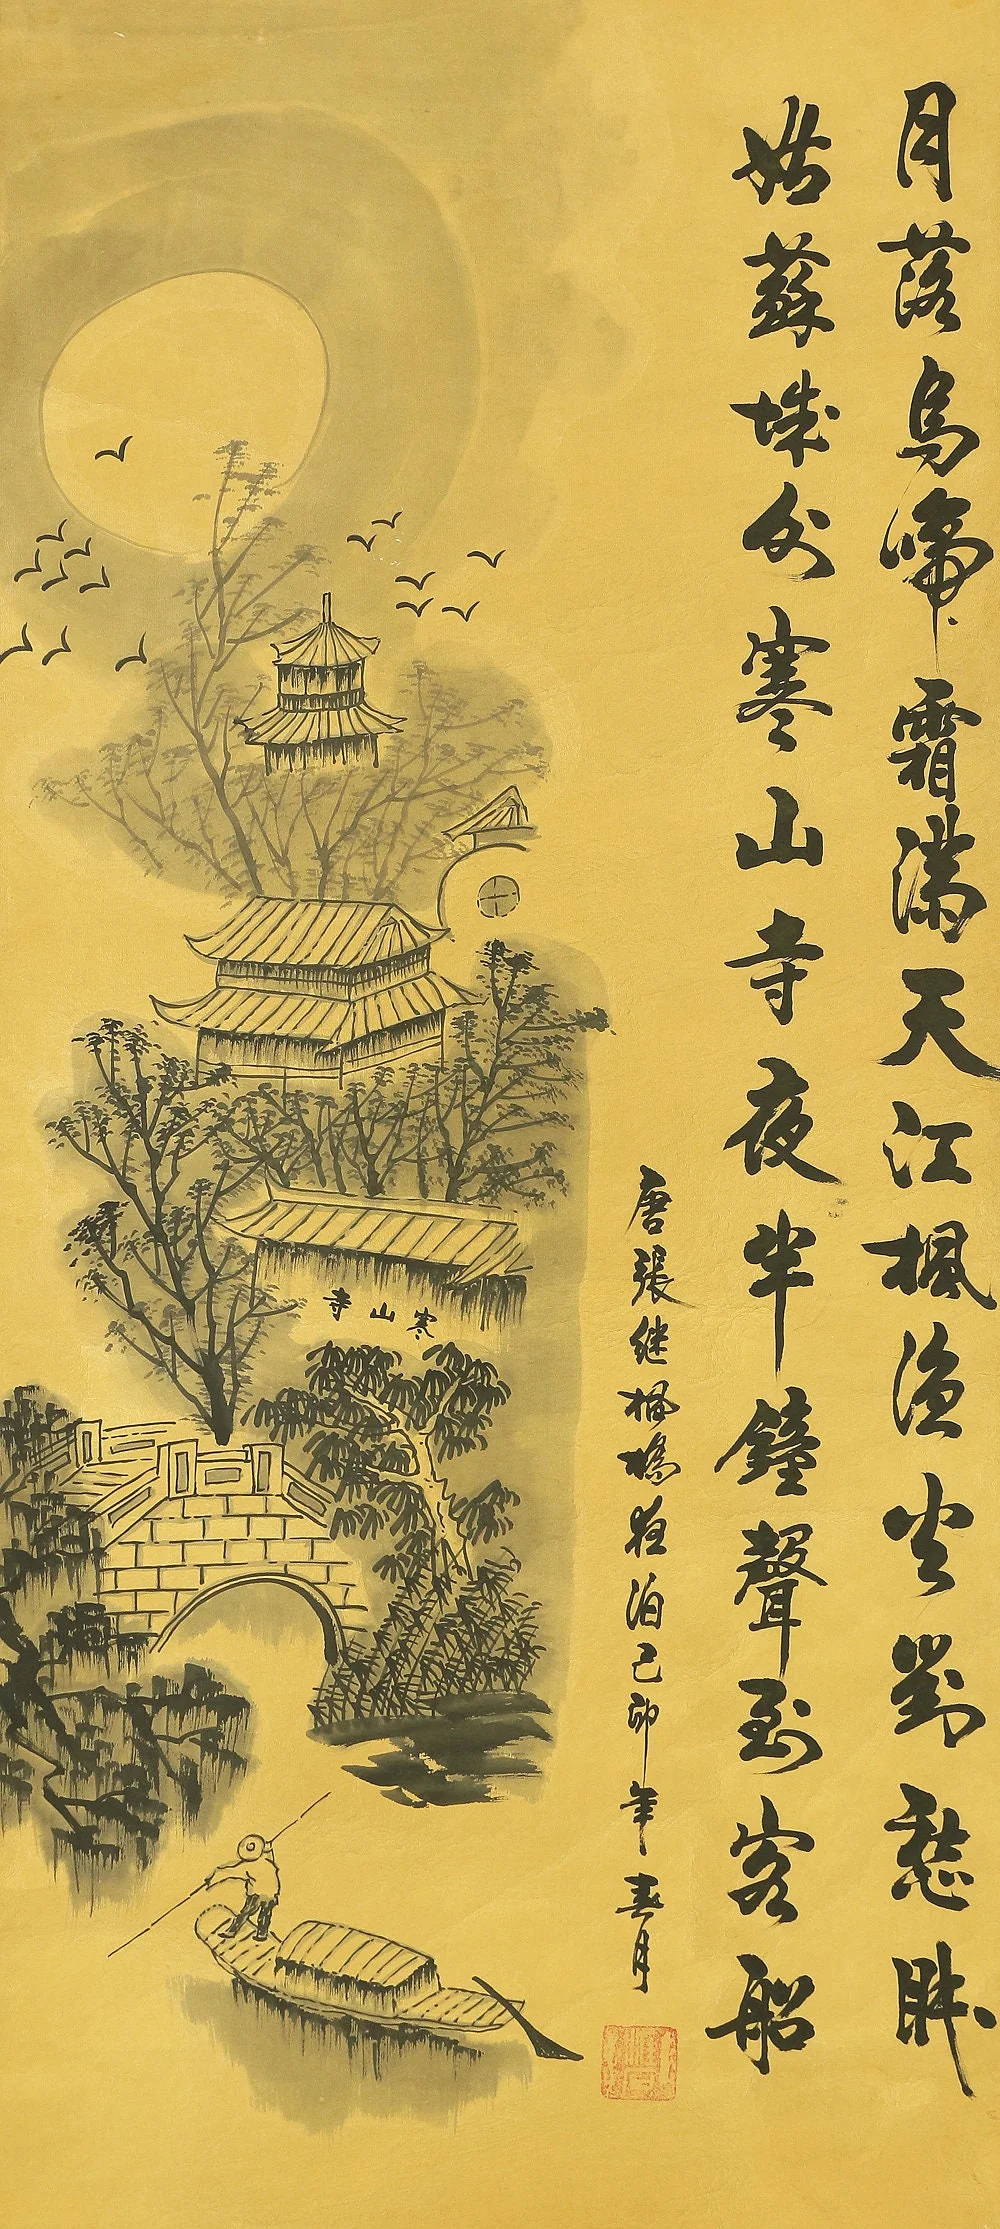 月落烏啼霜滿天江楓漁火對愁眠
姑蘇城外寒山寺夜半鐘聲到客船
唐張继楓橋夜泊己卯年春月
寒山寺